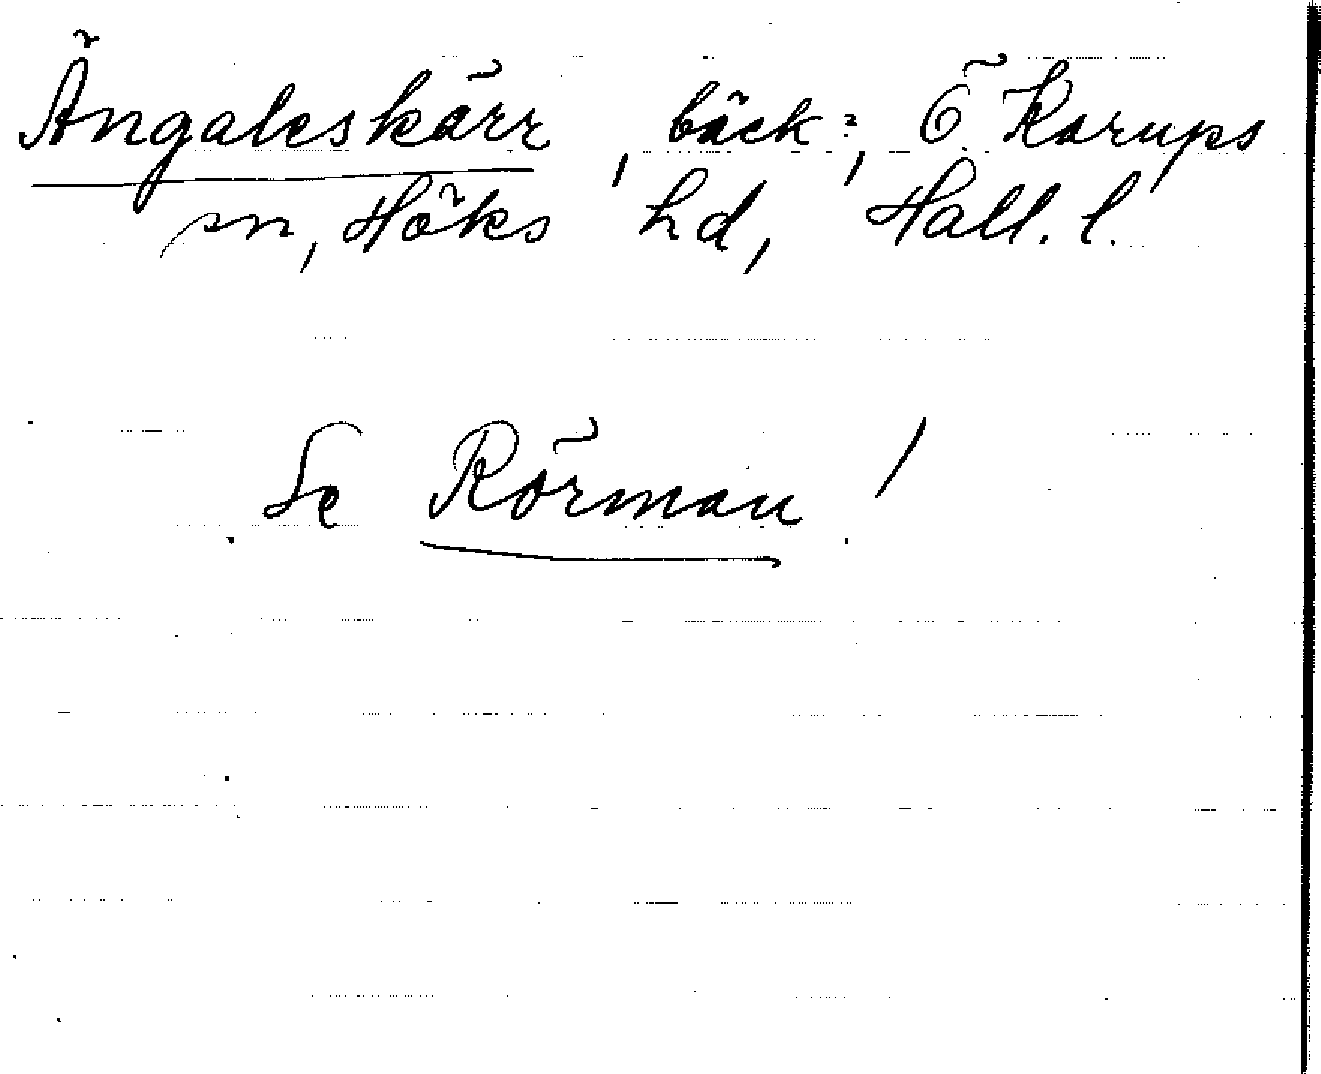 Ängaleskärr, bäck:, Ö Karups
sn, Höks hd, Hall. l.
Se Rörman!